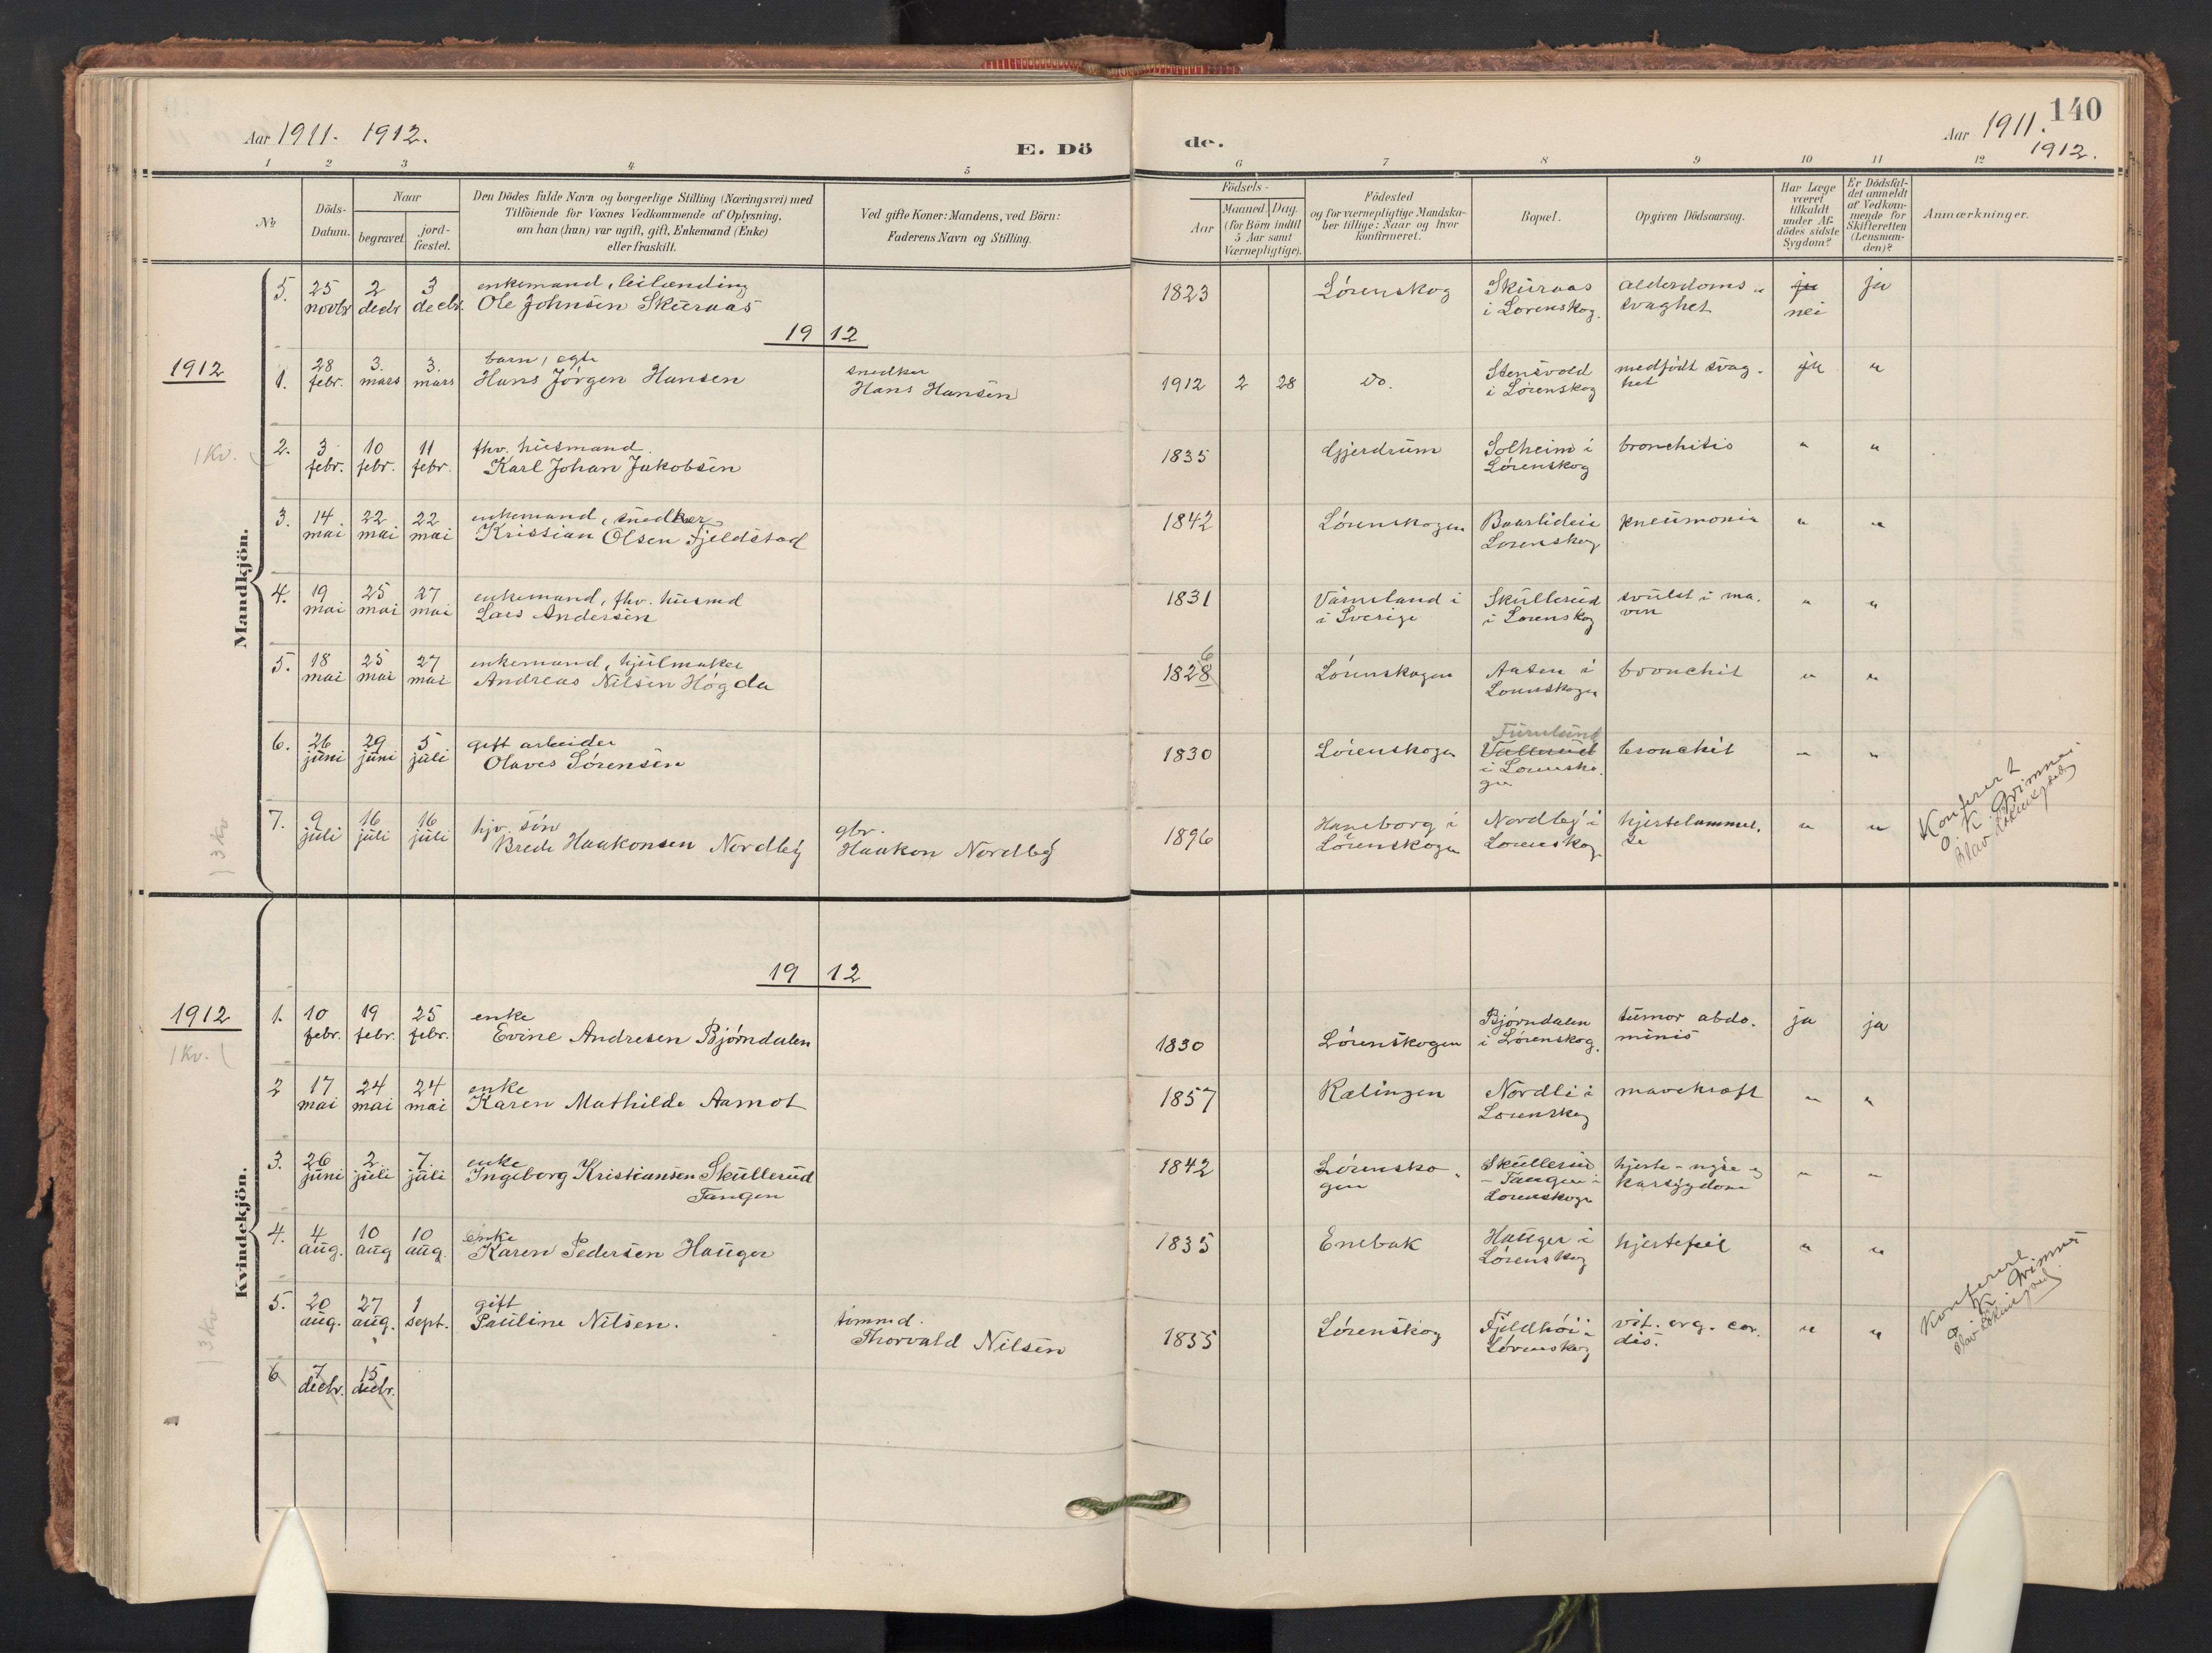 140
Aar 1911. 1912.
E. Döde.
Aar 1911.
1912.
1 2 3 4 5 6 7 8 9 10 11 12
No
Döds-Datum.
Naar
begravet.
jord-fæstet.
Den Dödes fulde Navn og borgerlige Stilling (Næringsvei) med
Tilföiende for Voxnes Vedkommende af Oplysning,
om han (hun) var ugift, gift, Enkemand (Enke)
eller fraskilt.
Ved gifte Koner: Mandens, ved Börn:
Faderens Navn og Stilling.
Födsels-
Aar
Maaned. Dag.
(for Börn indtil
5 Aar samt
Værnepligtige).
Födested
og for værnepligtige Mandska-
ber tillige: Naar og hvor
konfirmeret.
Bopæl.
Opgiven Dödsaarsag.
Har Læge
været
tilkaldt
under Af-
dödes sidste
Sygdom?
Er Dödsfal-
det anmeldt
af Vedkom-
mende for
Skifteretten
(Lensman-
den)?
Anmærkninger.
Mandkjön.
5. 25 novbr 2 decbr 3 decbr. enkemand, leilænding
Ole Johnsen Skuraas
1823 Lørenskog Skuraas i Lørenskog. alderdoms-svaghet ja nei ja
1912
1912
1. 28 febr. 3. mars 3. mars barn, egte
Hans Jørgen Hansen
snedker
Hans Hansen
1912 2 28 do. Stensvold i Lørenskog medfødt svag-het ja "
1 Kv.
2. 3 febr. 10 febr. 11 febr. fhv. husmand.
Karl Johan Jakobsen
1835 Gjerdrum Solheim i Lørenskog bronchitis " "
3. 14 mai 22 mai 22 mai enkemand, snedker
Kristian Olsen Fjeldstad
1842 Lørenskogen Lørenskog pneumonia " "
4. 19 mai 25 mai 27 mai enkemand, fhv. husmd
Lars Andersen
1831 Värmeland i i Sverige Skullerud i Lørenskog svulst i ma-ven " "
5. 18 mai 25 mai 27 mai enkemand, hjulmaker
Andreas Nilsen Høgda
1828 6 Lørenskogen Aasen i Lørenskogen bronchit " "
6. 26 juni 29 juni 5 juli gift arbeider
Olaves Sørensen
1830 Lørenskogen Furulund i Lørensko-gen bronchit " "
7. 9 juli 16 juli 16 juli hjv. søn
Brede Haakonsen Nordby
gbr.
Haakon Nordby
1896 Haneborg i Lørenskogen Nordby i Lørenskog hjertelammel-se " "
Konferert
O. K. Grimnes
3 Kv
Kvindekjön.
1912
1912
1 Kv.
1. 10 febr. 19 febr. 25 febr. enke
Evine Andresen Bjørndalen
1830 Lørenskogen Bjørndalen i Lørenskog. tumor abdo-minis ja ja
2 17 mai 24 mai 24 mai enke
Karen Mathilde Aamot
1857 Rælingen Nordli i Lørenskog mavekræft " "
3. 26 juni 2. juli 7. juli enke
Ingeborg Kristiansen Skullerud
Tangen
1842 Lørensko-gen Skullerud - Tangen - Lørenskogen hjerte - nyre - karsygdom " "
4. 4 aug. 10 aug 10 aug. enke
Karen Pedersen Hauger
1835 Enebak Hauger i Lørenskog hjertefeil " "
5. 20 aug. 27 aug. 1 sept. gift
Pauline Nilsen.
tømmd.
Thorvald Nilsen
1855 Lørenskog Fjeldhøi i Lørenskog vit. org. cor-dis. " "
Konferert
O. K. Grimnes
3 Kv
6 7 decbr. 15 decbr.